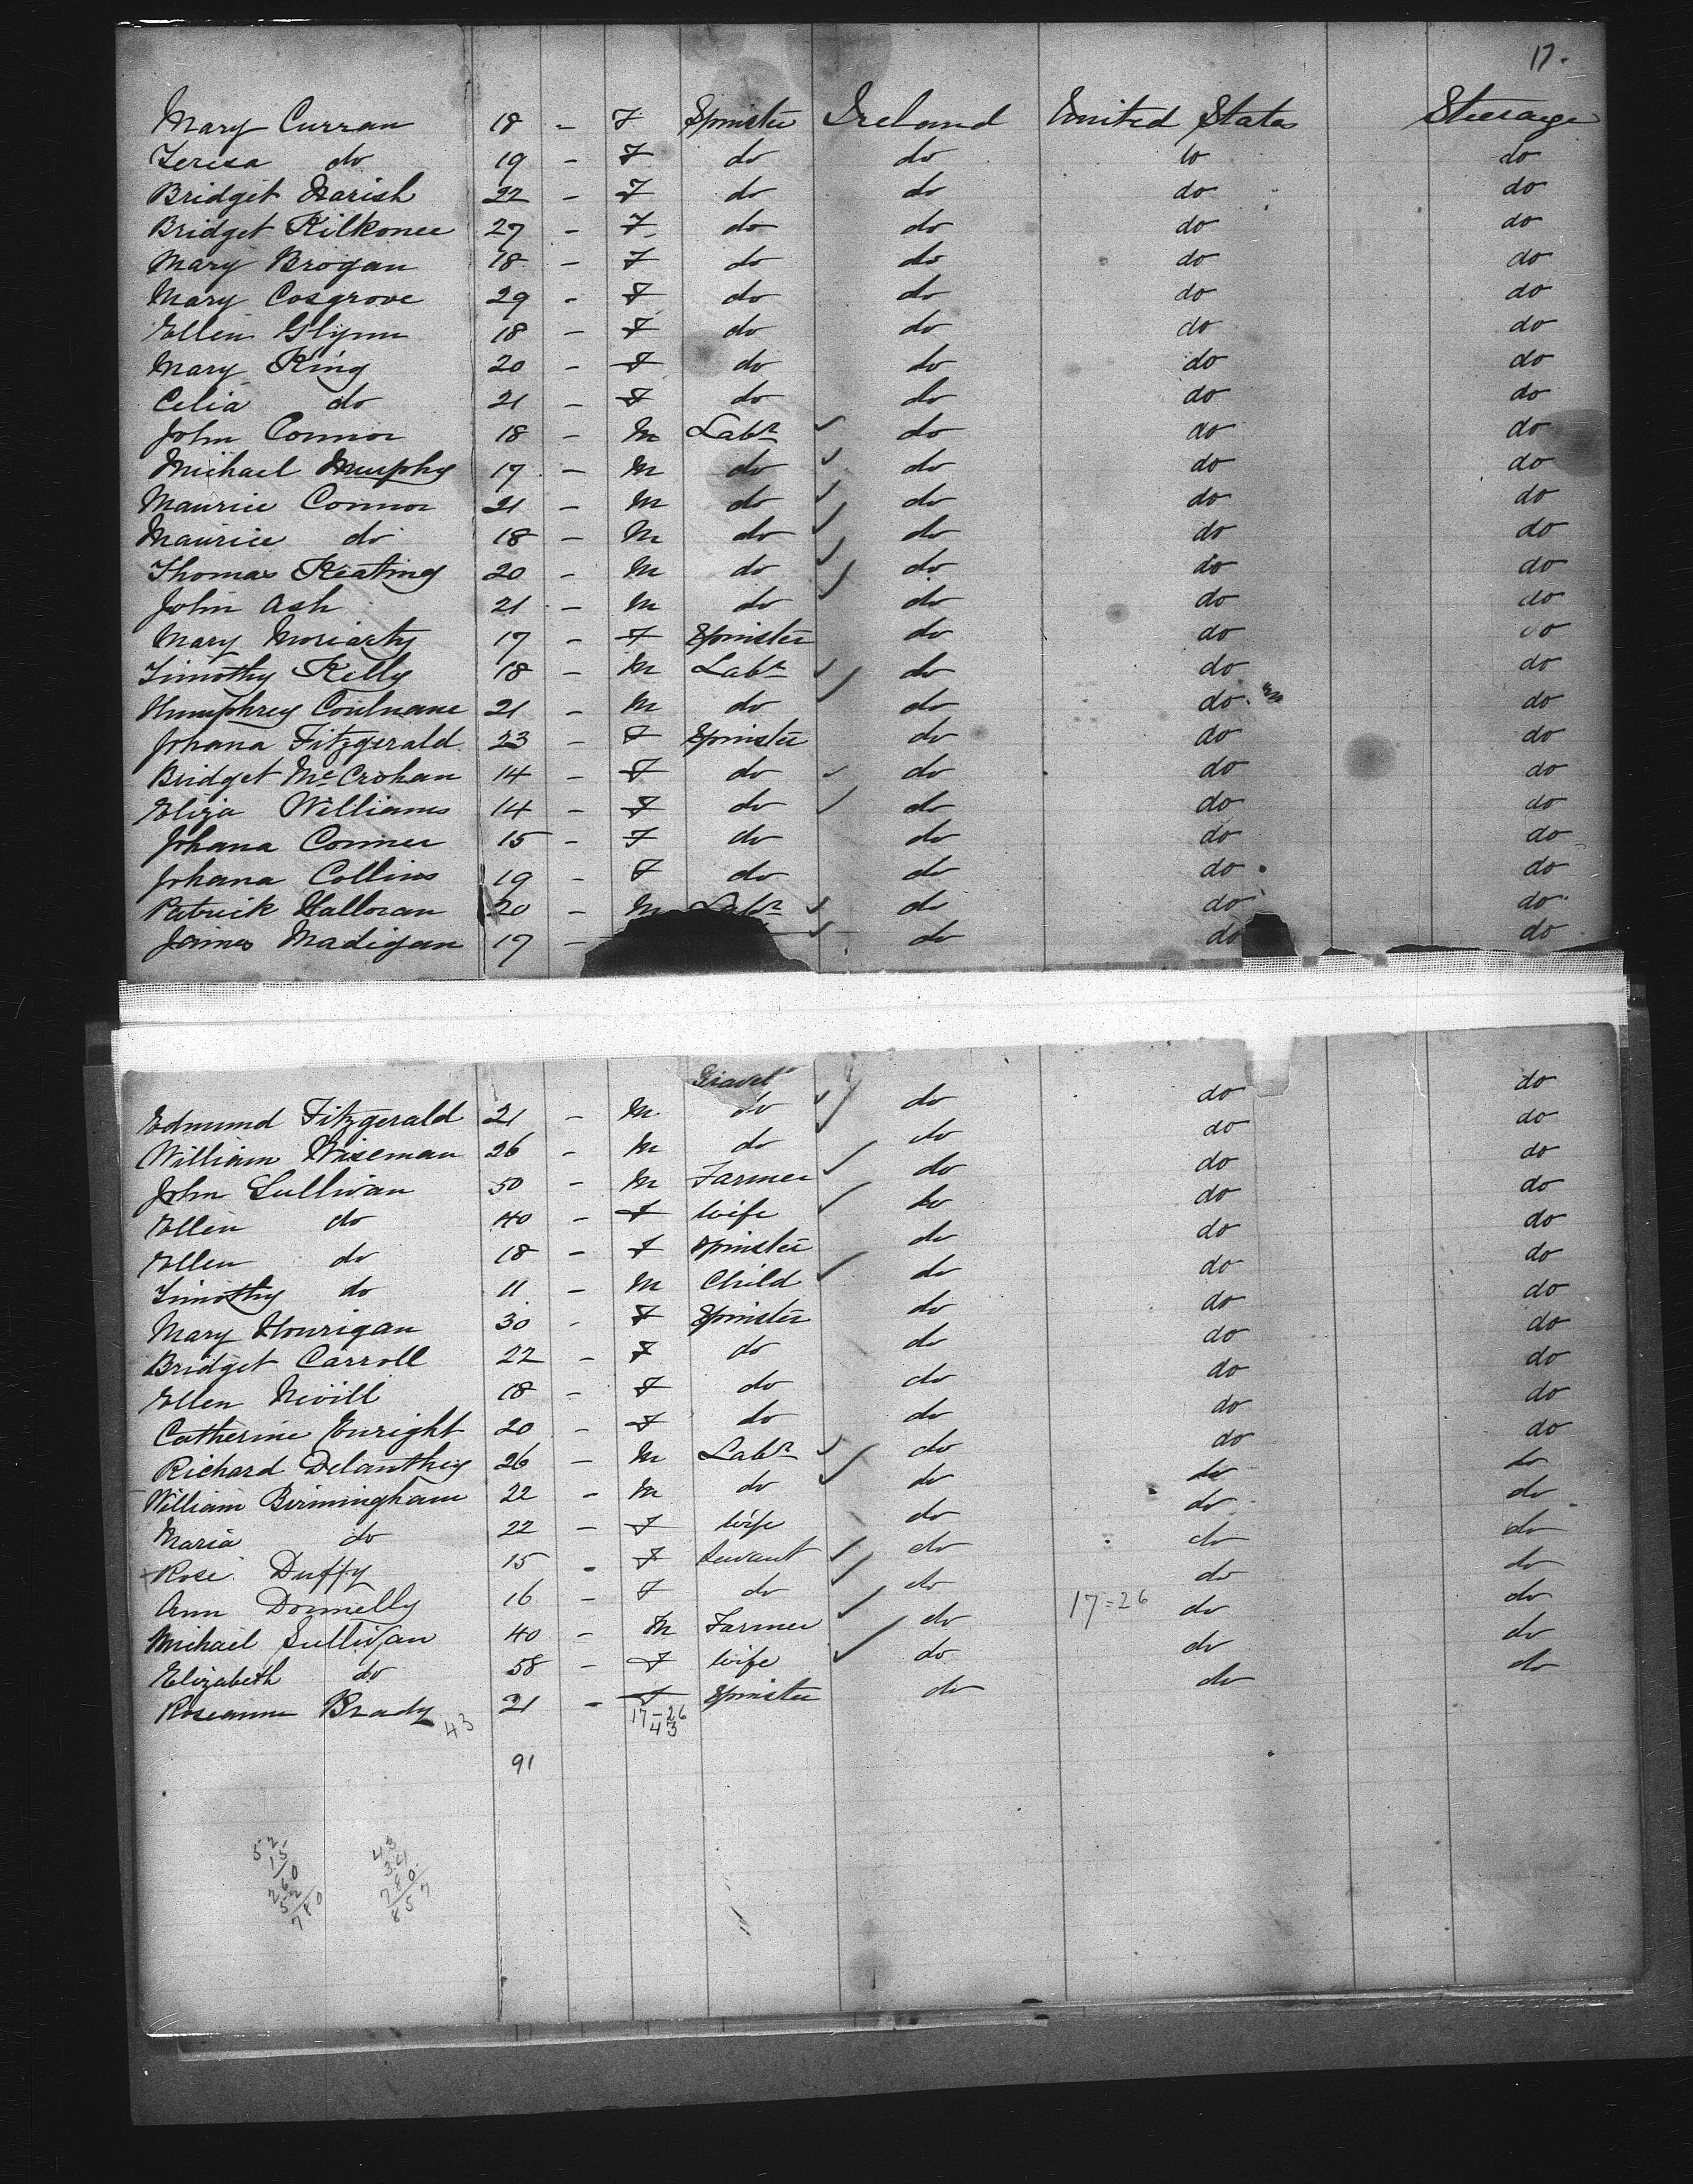 17.
Mary Curran 18 - F Spinster Ireland United States Steerage
Teresa do 19 - F do do do do
Bridget Harish 22 - F do do do do
Bridget Kilkonee 27 - F do do do do
Mary Brogan 18 - F do do do do
Mary Cosgrove 29 - F do do do do
Ellen Glynn 18 - F do do do do
Mary King 20 - F do do do do
Celia do 21 - F do do do do
John Connor 18 - M Labr ✓ do do do
Michael Murphy 17 - M do ✓ do do do
Maurice Connor 21 - M do ✓ do do do
Maurice do 18 - M do ✓ do do do
Thomas Keating 20 - M do ✓ do do do
John Ash 21 - M do ✓ do do do
Mary Moriarty 17 - F Spinster do do do
Timothy Kelly 18 - M Labr ✓ do do do
Humphrey 21 - M do ✓ do do do
Johana Fitzgerald 23 - F Spinster do do do
Bridget McCrohan 14 - F do ✓ do do do
Eliza Williams 14 - F do ✓ do do do
Johana Conner 15 - F do do do do
Johana Collins 19 - F do do do do
Patrick Halloran 20 - M Labr ✓ do do do
James Madigan 19 - ✓ do do do
Edmund Fitzgerald 21 - M do ✓ do do do
William Wiseman 26 - M do do do do
John Sullivan 50 - M Farmer ✓ do do do
Ellen do 40 - F Wife ✓ do do do
Ellen do 18 - F Spinster do do do
Timothy do 11 - M Child ✓ do do do
Mary Hourigan 30 - F Spinster do do do
Bridget Carroll 22 - F do do do do
Ellen Nevill 18 - F do do do do
Catherine Enright 20 - F do do do do
Richard Delanthey 26 - M Labr ✓ do do do
William Birmingham 22 - M do ✓ do do do
Maria do 22 - F Wife do do do
Rose Duffy 15 - F Servant ✓ do do do
Ann Donnelly 16 - F do ✓ do do do
Michael Sullivan 40 - M Farmer ✓ do 17=26 do do
Elizabeth do 58 - F Wife ✓ do do do
Roseanne Brady 21 - F Spinster do do do
43 17-26
43
91
52 43
15 34
260 780
52 857
780